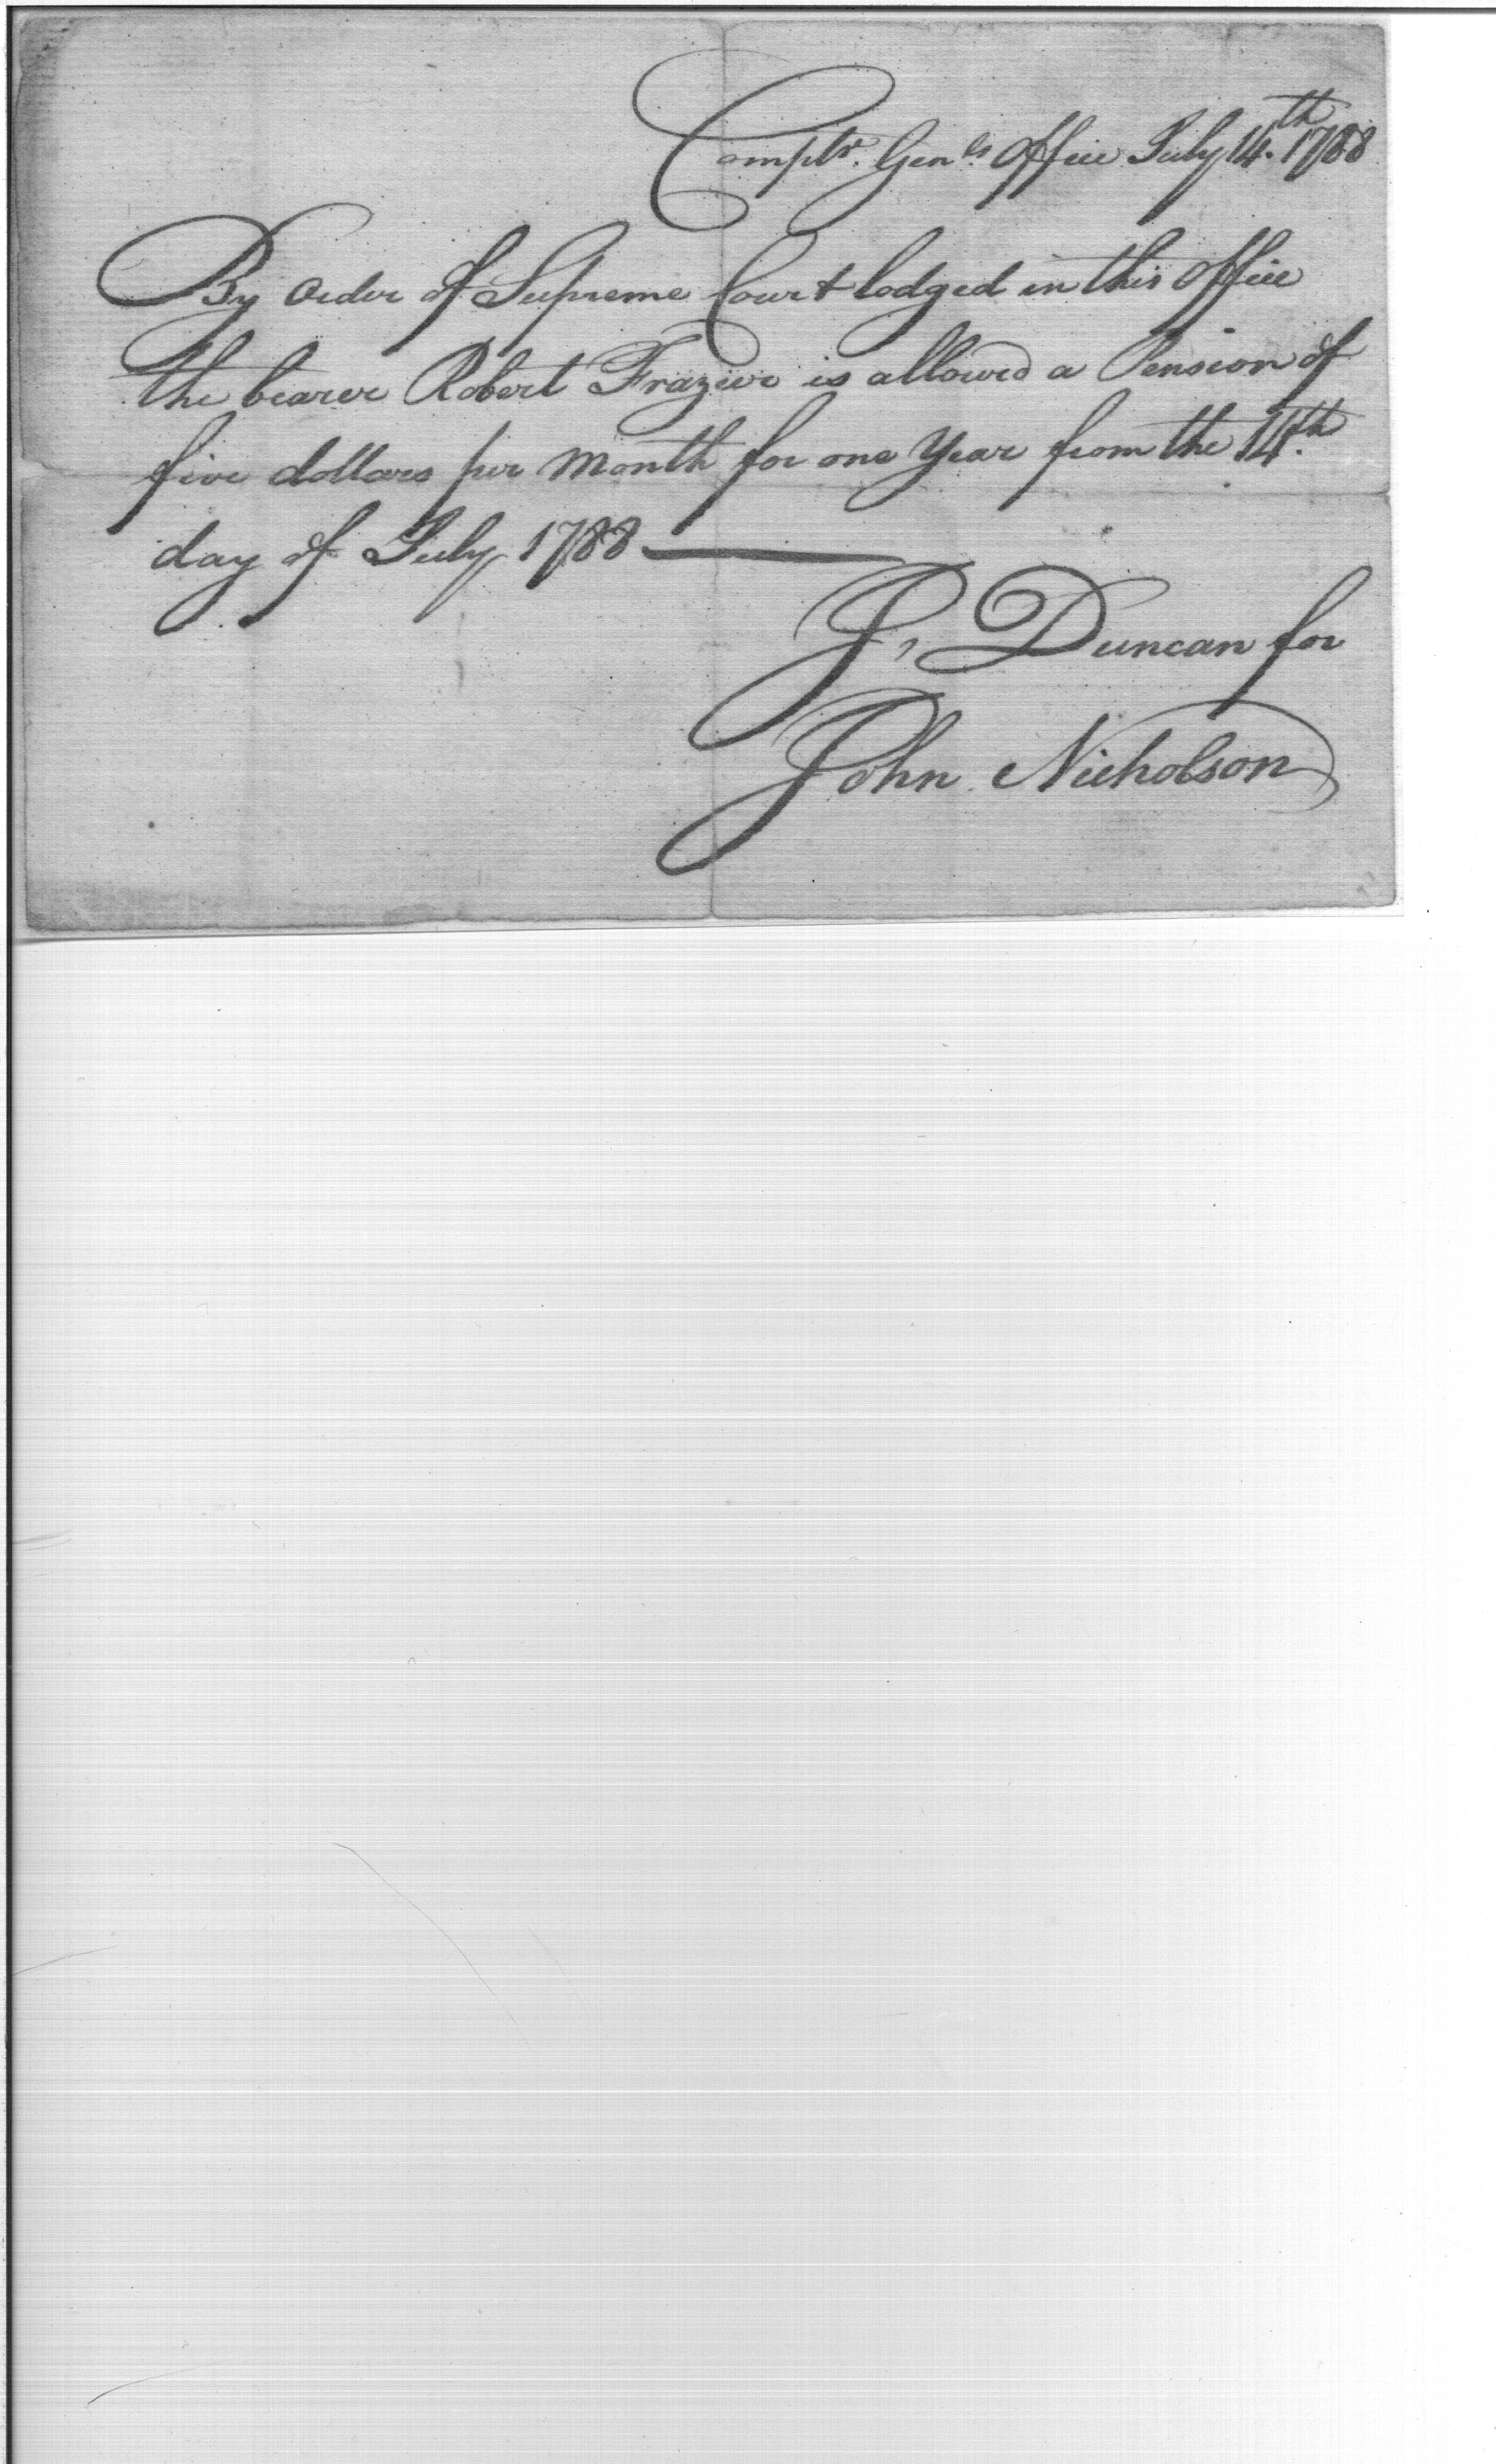 Comptr. Genls Office July 14th. 1788
By Order of Supreme Court lodged in this Office
the bearer Robert Frazier is allowed a Pension of
five dollars per Month for one Year from the 14th.
day of July 1788
J, Duncan for
John Nicholson